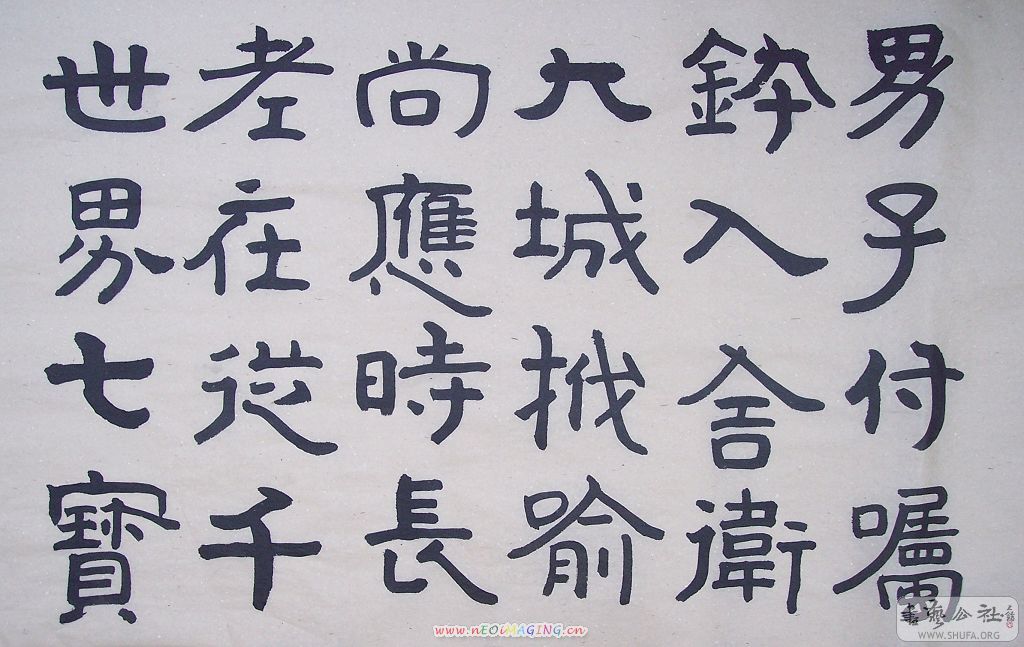 男子付囑
鉢入舍衛
大城栰喻
尚應時長
老在從千
世界七寶
www.nEOiMAGING.cn
書藝公社
WWW.SHUFA.ORG